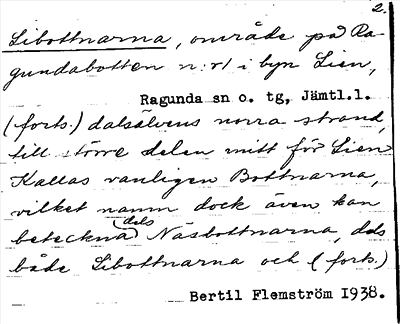 2.
Libottnarna, område på Ra-
gundabotten n:r1 i byn Lien,
Ragunda sn o. tg, Jämtl.l.
(forts.) dalsälvens norra strand,
till större delen mitt för Lien
Kallas vanligen Bottnarna,
vilket namn dock även kan
dels
beteckna Näsbottnarna, dels
både Libottnarna och (forts.)
Bertil Flemström 1938.